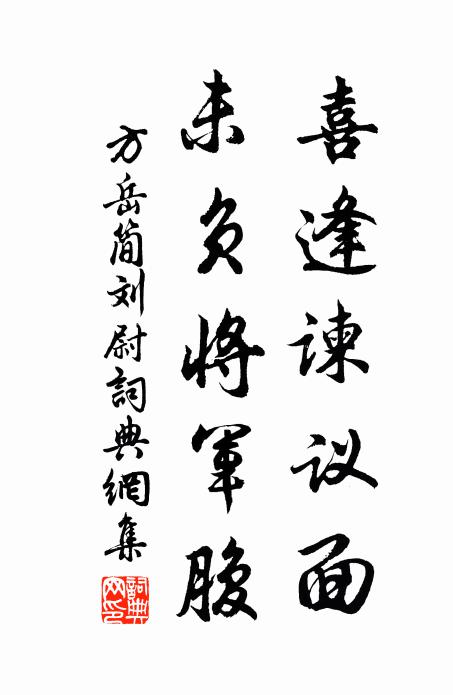 喜逢谏议面
未负将军腹
方岳简刘尉詞典網集
詞典网印